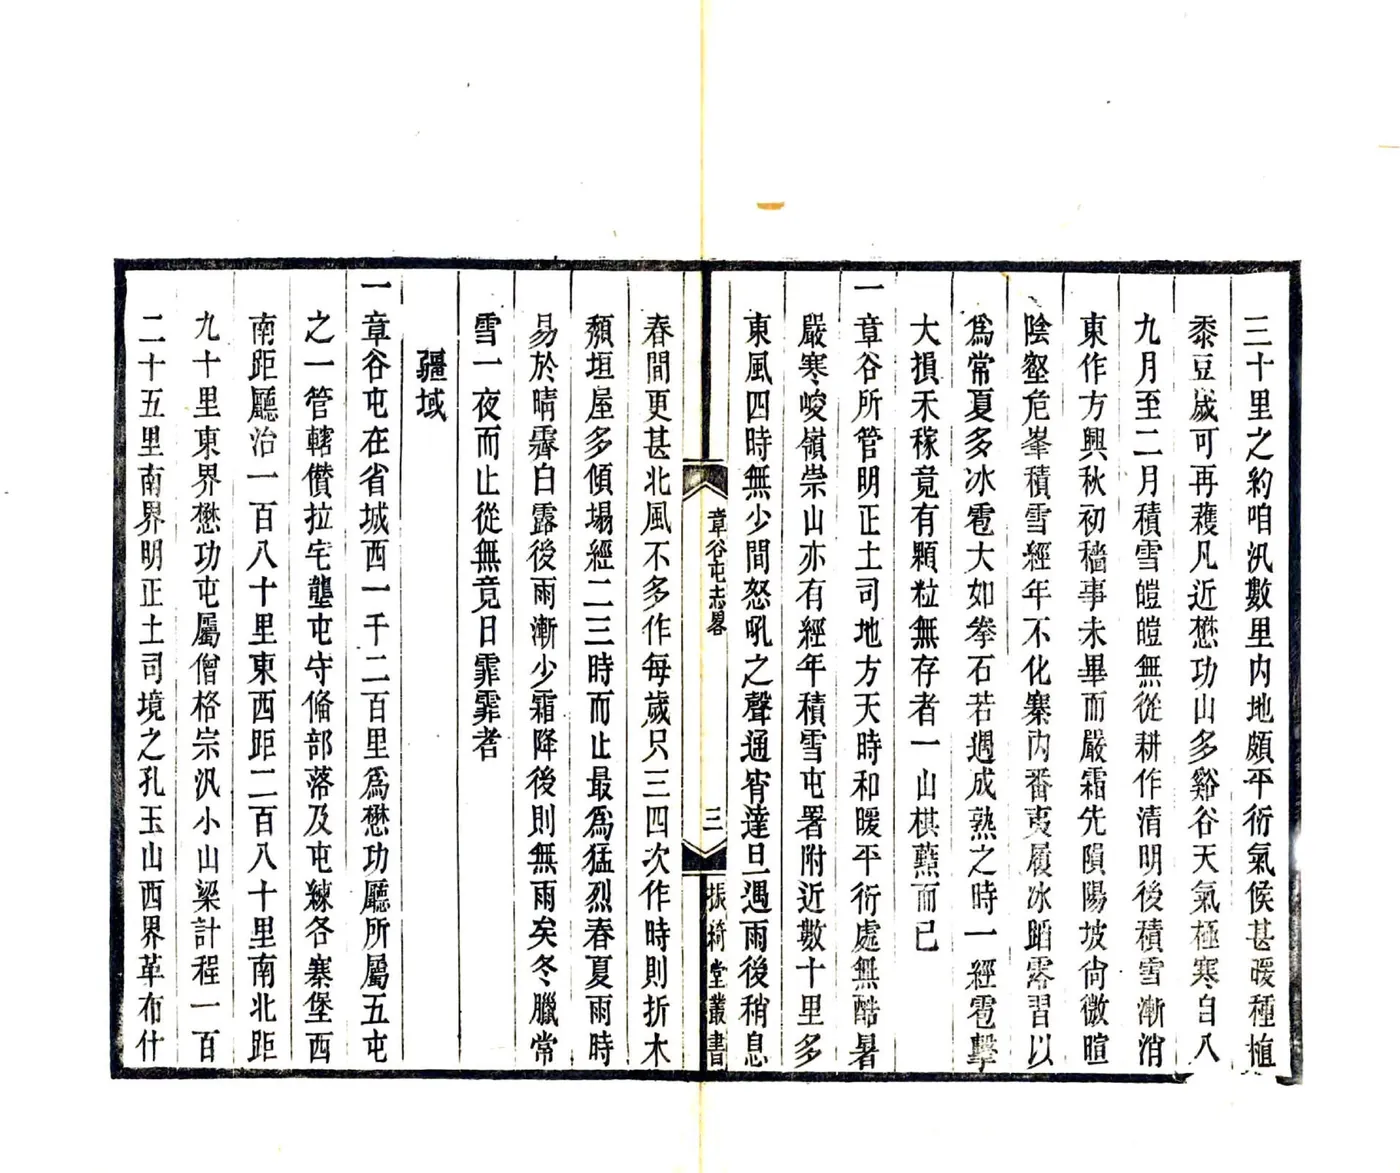 三十里之約咱汛數里內地頗平衍氣候甚暖種植
黍豆歲可再穫凡近懋功山多谿谷天氣極寒自八
九月至二月積雪皚皚無從耕作清明後積雪漸消
東作方興秋初穡事未畢而嚴霜先隕陽坡尙微暄
陰壑危峯積雪經年不化寨內番夷履冰蹈澪習以
爲常夏多冰雹大如拳石若遇成熟之時一經雹擊
大損禾稼竟有顆粒無存者一山棋蘸而已
一章谷所管明正土司地方天時和暖平衍處無酷暑
嚴寒峻嶺崇山亦有經年積雪屯署附近數十里多
東風四時無少間怒吼之聲通宵達旦遇雨後稍息
章谷屯志畧
三
振綺堂叢書
春間更甚北風不多作每歲只三四次作時則折木
頽垣屋多傾塲經二三時而止最爲猛烈春夏雨時
易於晴霽白露後雨漸少霜降後則無雨矣冬臘常
雪一夜而止從無竟日霏霏者
疆域
一章谷屯在省城西一千二百里爲懋功廳所屬五屯
之一管轄儹拉宅壟屯守俻部落及屯練各寨堡西
南距廳治一百八十里東西距二百八十里南北距
九十里東界懋功屯屬僧格宗汛小山梁計程一百
二十五里南界明正土司境之孔玉山西界革布什